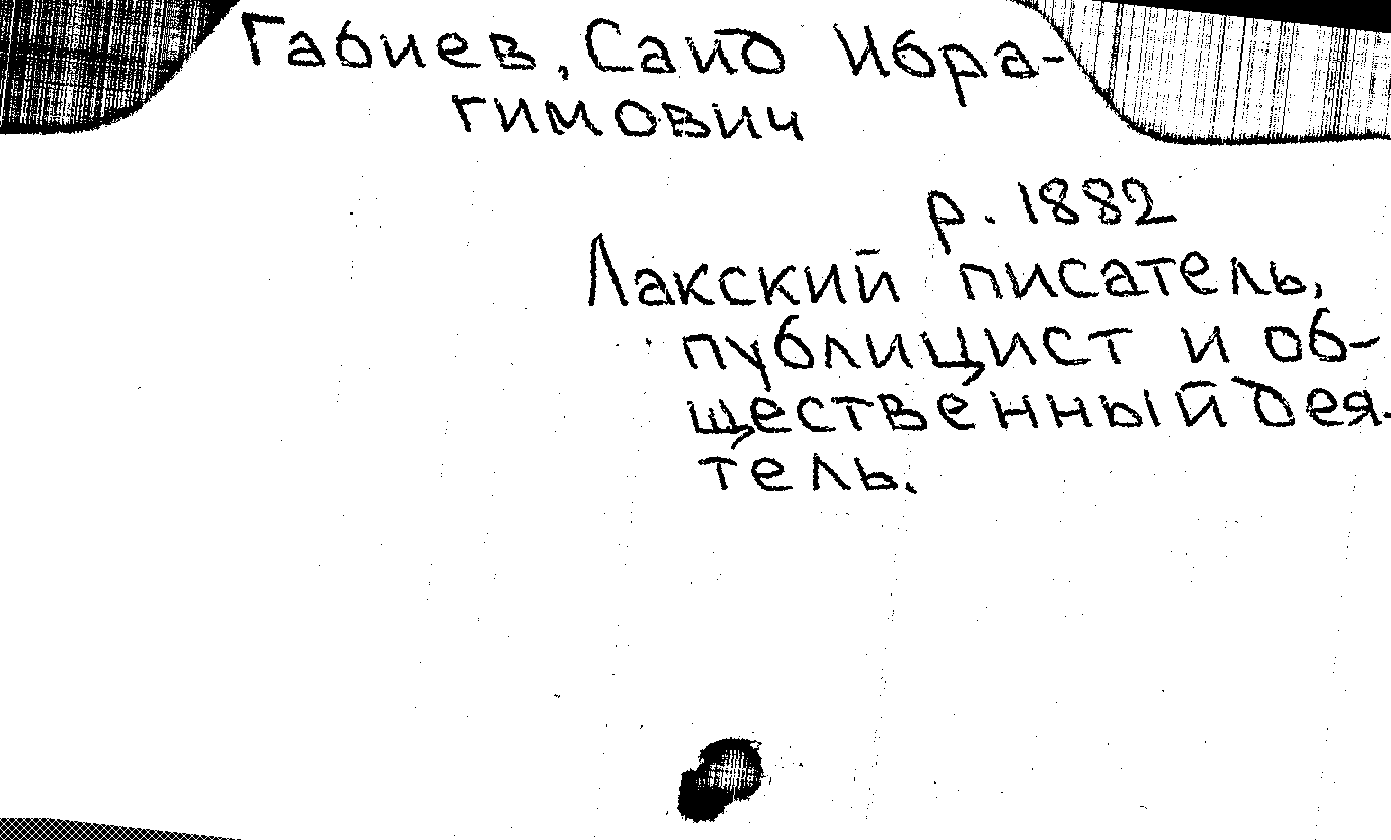 Габиев, Саид Ибра-
гимович
р. 1882
Лакский писатель,
публицист и об-
щественный дея-
тель.